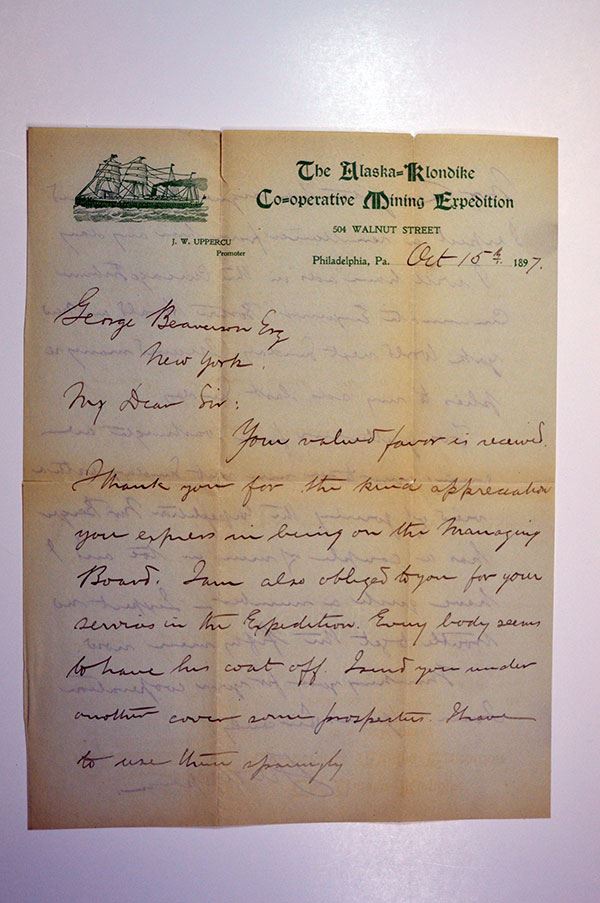 The Alaska=Klondike
Co=operative Mining Expedition
504 WALNUT STREET
J. W. UPPERCU
Promoter
Philadelphia, Pa. Oct 15th 1897.
George Beaverson Esq
New York.
My Dear Sir:
Your valued favor is received.
Thank you for the kind appreciation
you express in being on the Managing
Board. I am also obliged to you for your
services in the Expedition. Every body seems
to have his coat off. I send you under
another cover some prospectus. I have
to use them sparingly